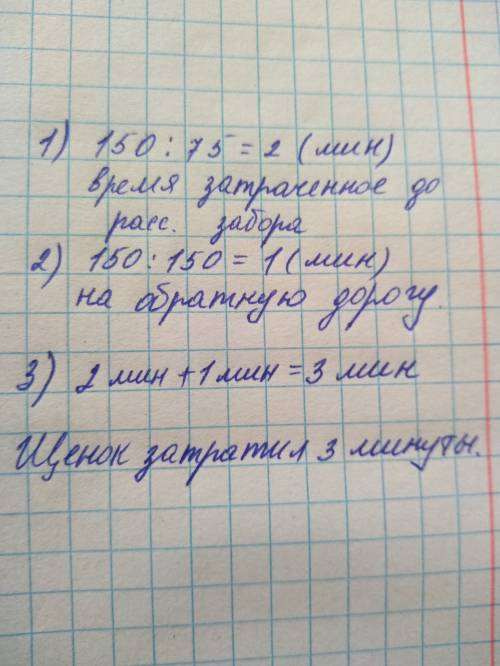 1) 150 : 75 = 2 (мин)
время затраченное до
расс. забора
2) 150 : 150 = 1 (мин)
на обратную дорогу.
3) 2 мин + 1 мин = 3 мин
Щенок затратил 3 минуты.